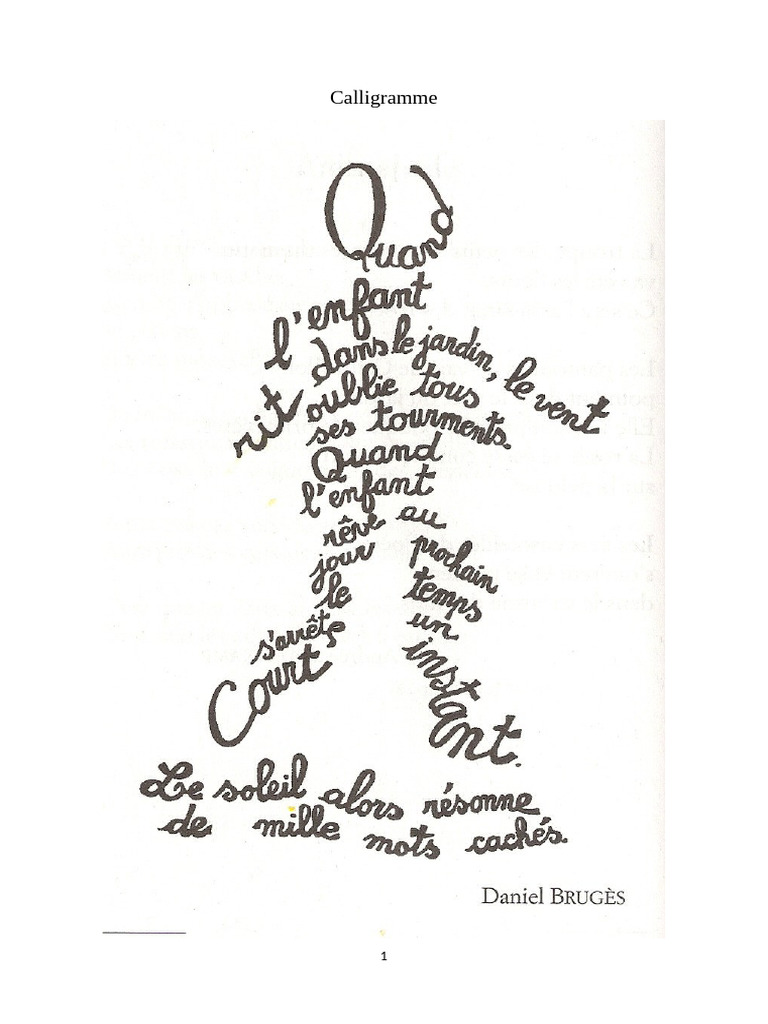 Calligramme
Quand
l'enfant
rit dans le jardin, le vent
oublie tous
ses tourments.
Quand
l'enfant
rêve au
jour prochain
le temps
s'arrête un
Court instant.
Le soleil alors résonne
de mille mots cachés.
Daniel BRUGÈS
1